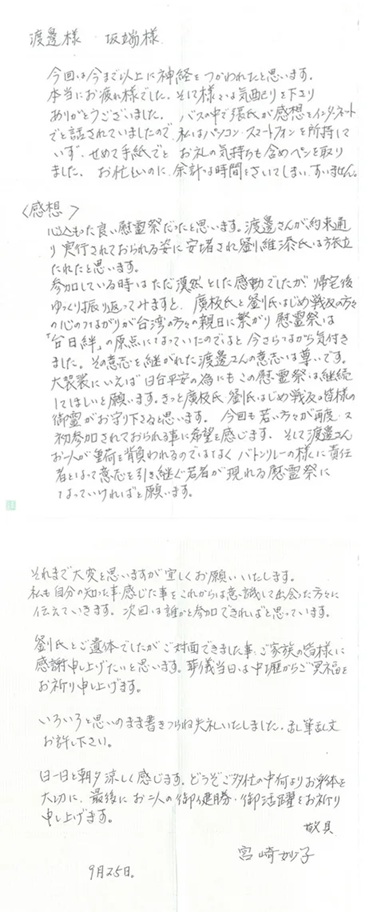 渡邉様　坂端様
今回は今まで以上に神経をつかわれたと思います。
本当にお疲れ様でした。そして様々な気配りを下さり
ありがとうございました。バスの中で張氏が感想をインターネット
でと話されていましたので、私はパソコン・スマートフォンを所持して
いず、せめて手紙でと お礼の気持ちも含めペンを取り
ました。お忙しいのに、余計な時間をさいてしまい、すいません。
〈感想〉
心のこもった良い慰霊祭だったと思います。渡邉さんが約束通
り実行されておられる姿に安堵され劉維添氏も旅立
たれたと思います。
参加している時はただ漠然とした感動でしたが 帰宅後
ゆっくり振り返ってみますと、廣枝氏と劉氏はじめ戦友の方々
の心のつながりが台湾の方々の親日に繋がり 慰霊祭は
「台日絆」の原点になっていたのでると今さらながら気付き
ました。その意志を継がれた渡邉さんの意志は尊いです。
大袈裟にいえば 日台平安の為にもこの慰霊祭は継続
してほしいと願います。きっと廣枝氏 劉氏はじめ戦友の皆様の
御霊がお守り下さると思います。今回も若い方々が再度、又
初参加されておられる事に希望を感じます。そして渡邉さん
お一人が重荷を背負われるのではなくバトンリレーの様に責任
者となって意志を引き継ぐ若者が現れる慰霊祭に
なっていければと願います。
それまで大変と思いますが宜しくお願いいたします。
私も自分の知った事感じた事をこれからは意識して出会った方々に
伝えていきます。次回は誰かと参加できればと思っています。
劉氏とご遺体でしたがご対面できました事、ご家族の皆様に
感謝申し上げたいと思います。葬儀当日は中壢からご冥福を
お祈り申し上げます。
いろいろと思いのまま書きつらね失礼いたしました。乱筆乱文
お許し下さい。
日一日と朝夕涼しく感じます。どうぞご多忙の中何よりお身体を
大切に、最後に お二人の御健勝・御活躍をお祈り
申し上げます。
敬具
宮崎妙子
9月25日。